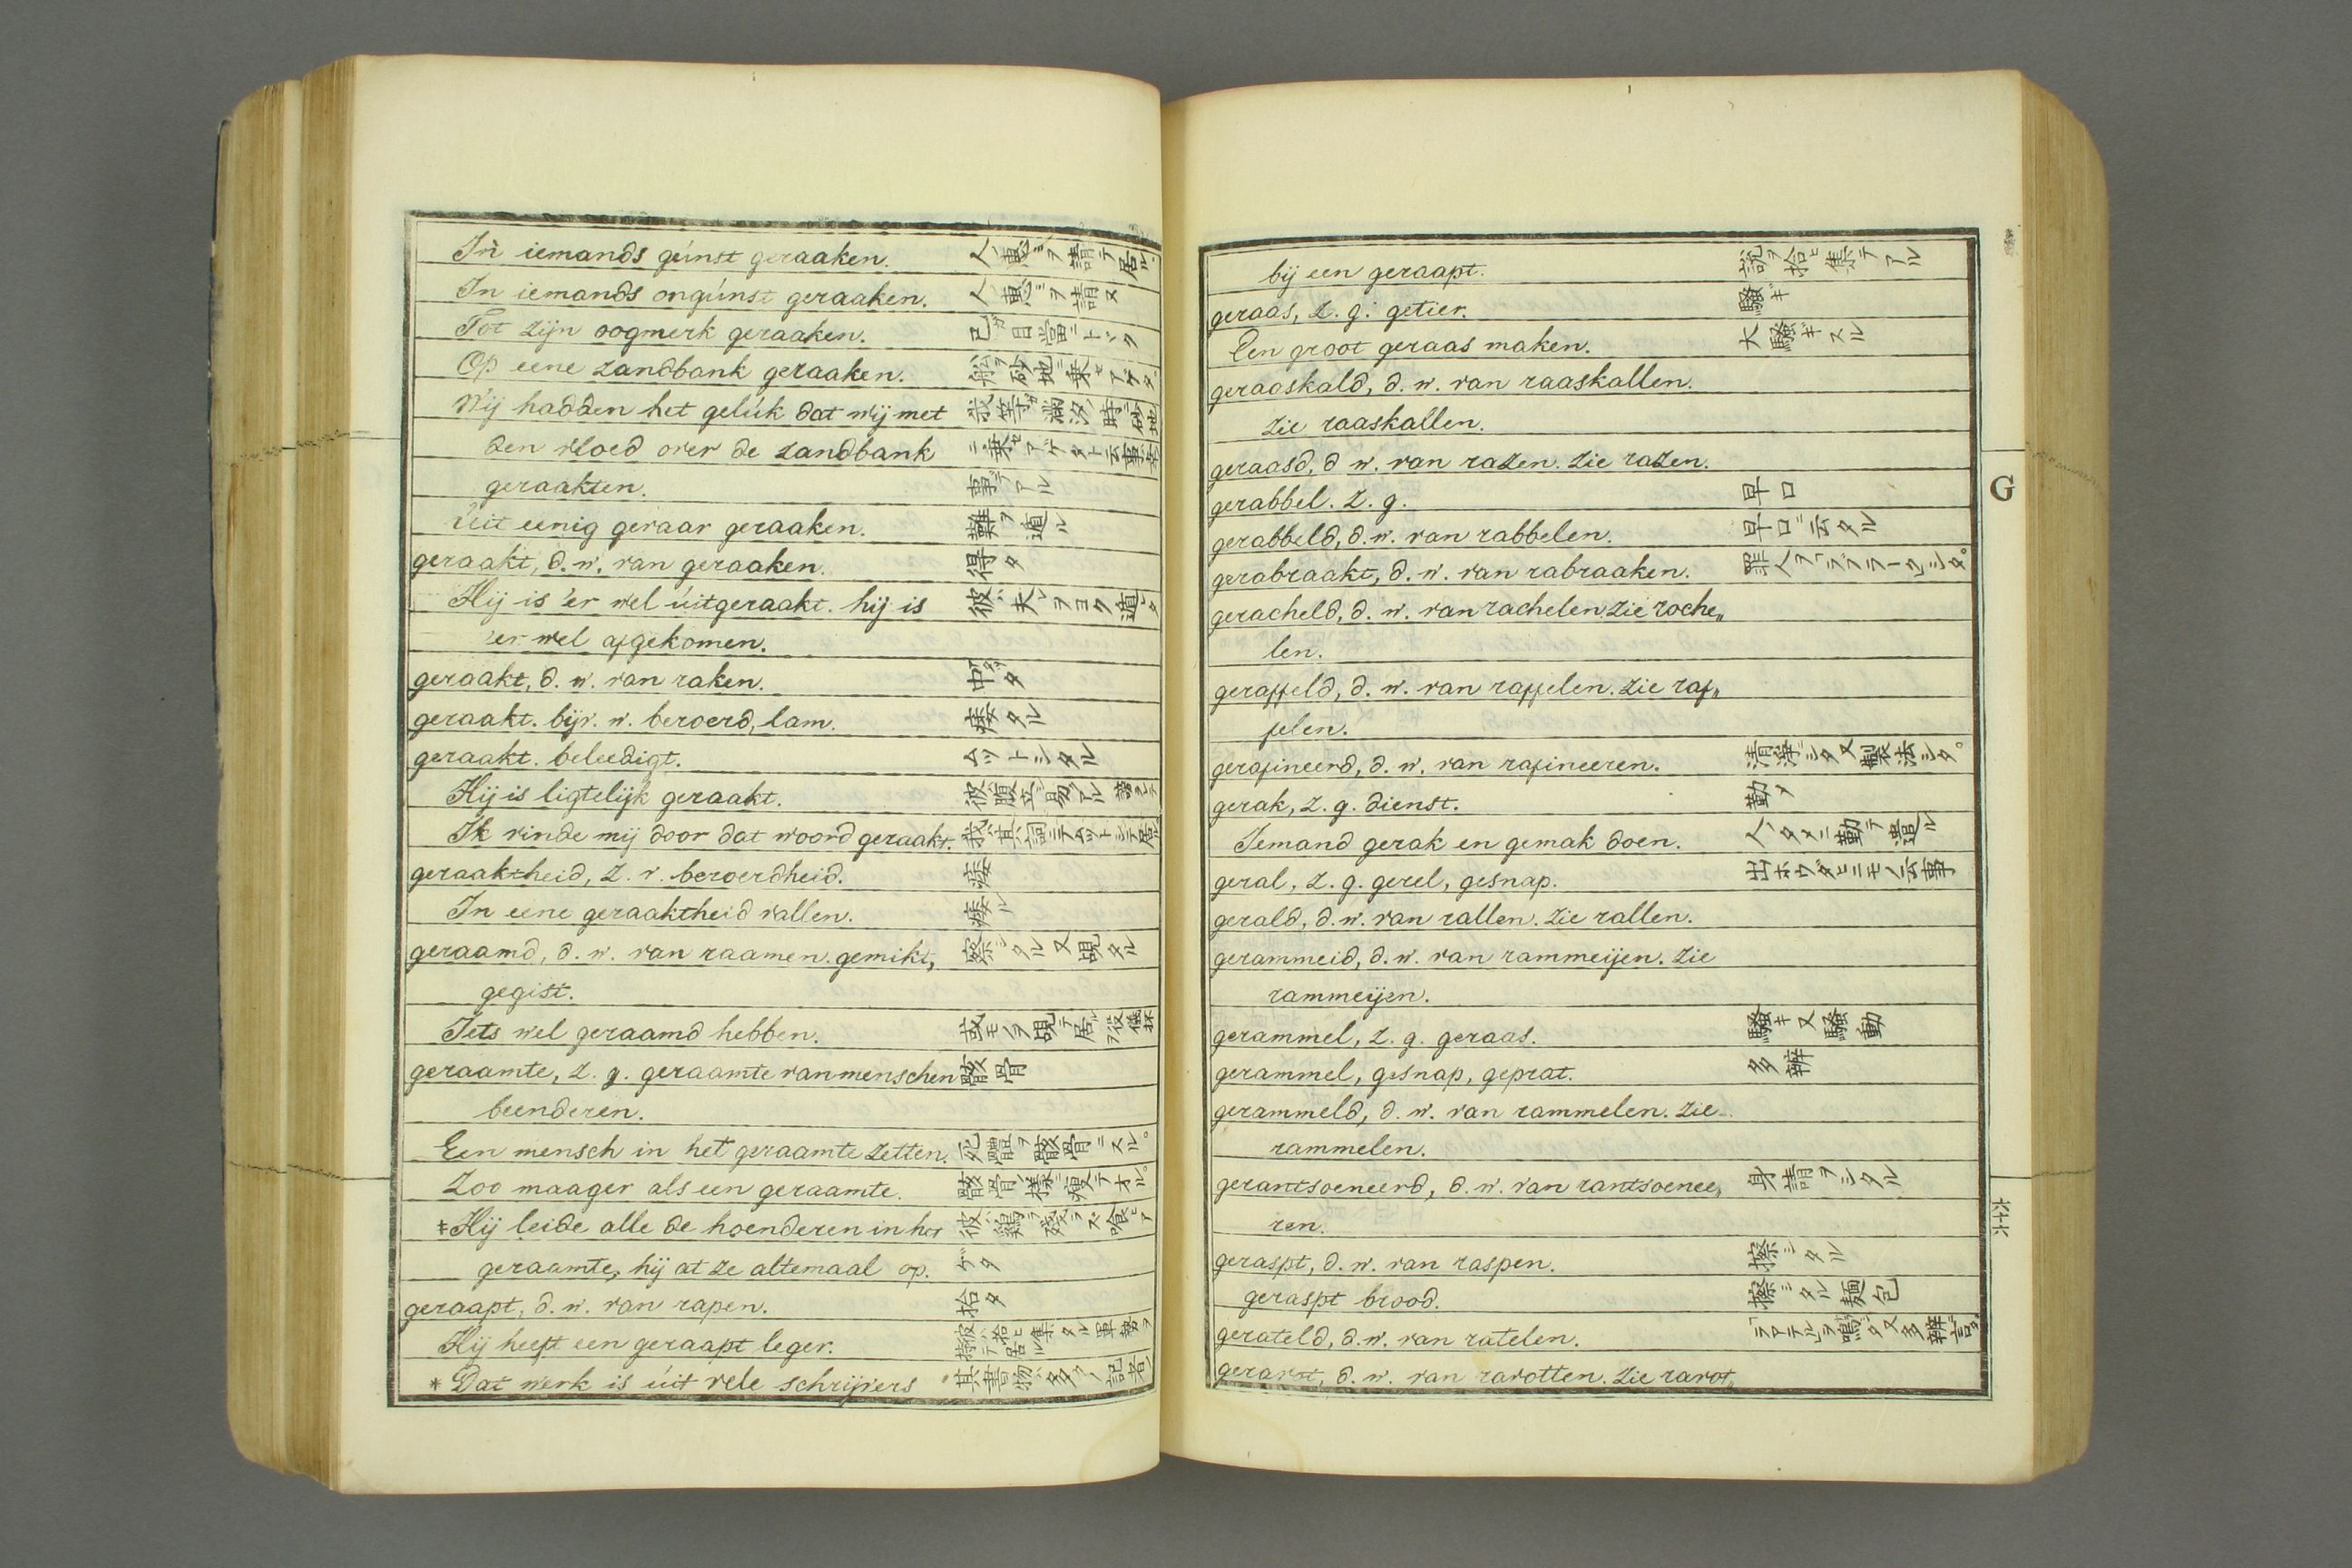 In iemands gúnst geraaken. 人ノ恵ミヲ請テ居ル
In iemands ongúnst geraaken. 人ノ恵ミヲ請ヌ
Tot zijn oogmerk geraaken. 己ガ目當ニトヾク
Op eene zandbank geraaken. 舩ヲ砂地ニ乗セアゲタ
Wij hadden het gelúk dat wij met 我等ガ満汐ノ時ニ砂地
den vloed over de zandbank ニ乗セアゲタト云事幸
geraakten. 事デアル
Uit eenig gevaar geraaken. 難ヲ遁ル
geraakt, d. w. van geraaken. 得タ
Hij is 'er wel úitgeraakt. hij is 彼ハ夫レヲヨク遁レタ
'er wel afgekomen.
geraakt, d. w. van raken. 中タ
geraakt. bijv. w. beroerd, lam. 痿タル
geraakt. beleedigt. ムットシタル
Hij is ligtelijk geraakt. 彼ハ腹立易クアル
Ik vinde mij door dat woord geraakt. 我ハ其詞ニテムットシテ居ル
geraaktheid, z. v. beroerdheid. 痿
In eene geraaktheid vallen. 痿ル
geraamd, d. w. van raamen. gemikt, 察シタル又覗タル
gegist.
Iets wel geraamd hebben. 或モノヲ覗テ居ル
geraamte, z. g. geraamte van menschen 骸骨
beenderen.
Een mensch in het geraamte zetten. 死體ヲ骸骨ニスル。
Zoo maager als een geraamte. 骸骨ノ様ニ痩テオル。
*Hij leide alle de hoenderen in het 彼ハ鶏ヲ殘ラズ喰ヒア
geraamte, hij at ze altemaal op. ゲタ
geraapt, d. w. van rapen. 拾タ
Hij heeft een geraapt leger. 彼ハ拾ヒ集タル軍勢ヲ持テ居ル
* Dat werk is úit vele schrijvers 其書物ハ多クノ記者ノ
bij een geraapt. 説ヲ拾ヒ集テアル
geraas, z. g. getier. 騒ギ
Een groot geraas maken. 大騒ギスル
geraaskald, d. w. van raaskallen.
zie raaskallen.
geraasd, d w. van razen. zie razen.
gerabbel. z. g. 早口
gerabbeld, d. w. van rabbelen. 早口ニ云タル
gerabraakt, d. w. van rabraaken. 罪人ヲラブラーケンシタ。
geracheld, d. w. van rachelen zie roche„
len.
geraffeld, d. w. van raffelen. zie raf„
felen.
gerafineerd, d. w. van rafineeren. 清浄シタ又製法シタ。
gerak, z. g. dienst. 勤メ
Iemand gerak en gemak doen. 人ノタメニ勤テ遣ル
geral, z. g. gerel, gesnap. 出ホウダヒニモノ云事
gerald, d. w. van rallen. zie rallen.
gerammeid, d. w. van rammeijen. zie
rammeijen.
gerammel, z. g. geraas. 騒キ又騒動
gerammel, gesnap, geprat. 多辨
gerammeld, d. w. van rammelen. zie
rammelen.
gerantsoeneerd, d. w. van rantsoenee„ 身請ヲシタル
ren.
geraspt, d. w. van raspen. 擦シタル
geraspt brood. 擦シタル麺包
gerateld, d. w. van ratelen. ラアテルヲ鳴シタ又多辨言タ
geravot, d. w. van ravotten. zie ravot„
G